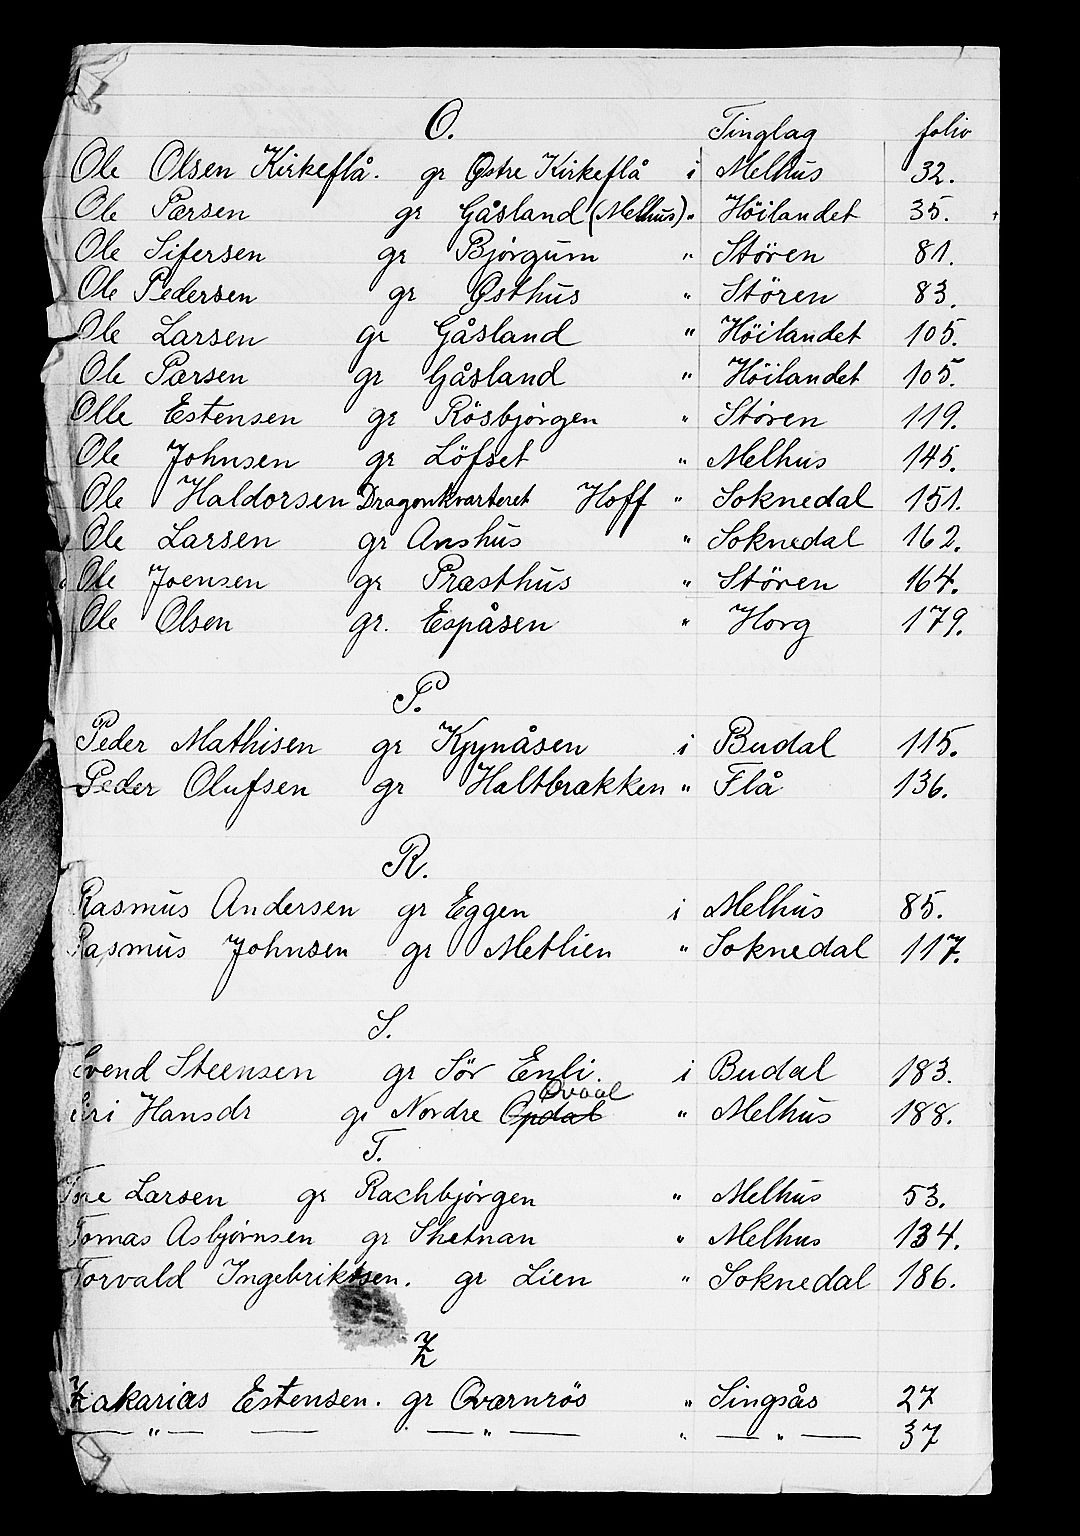 O. Tinglag folio
Ole Olsen Kirkeflå. gr Østre Kirkeflå i Melhus 32.
Ole Pærsen gr Gåsland (Melhus) „ Höilandet 35.
Ole Sifersen gr Bjørgum „ Stören 81.
Ole Pedersen gr Østhus „ Stören 83.
Ole Larsen gr Gåsland „ Höilandet 105.
Ole Pærsen gr Gåsland „ Höilandet 105.
Olle Estensen gr Rösbjörgen „ Stören 119.
Ole Johnsen gr Löfset „ Melhus 145.
Ole Haldorsen Dragonkvarteret Hoff „ Soknedal 151.
Ole Larsen gr Anshus „ Soknedal 162.
Ole Joensen gr Præsthus „ Stören 164.
Ole Olsen gr. Espåsen „ Horg 179.
P.
Peder Mathisen gr Kjynåsen i Budal 115.
Peder Olufsen gr Haltbrækken „ Flå 136.
R.
Rasmus Andersen gr Eggen i Melhus 85.
Rasmus Johnsen gr Metlien „ Soknedal 117.
S.
Svend Steensen gr Sör Enli. i Budal 183.
Qvaal
Siri Hansdr gr Nordre Opdal „ Melhus 188.
T.
Tore Larsen gr Rachbjörgen „ Melhus 53.
Tomas Asbjørnsen gr Sketnan „ Melhus 134.
Torvald Ingebriktsen. gr Lien „ Soknedal 186.
Z
Zakarias Estensen. gr Qværnrös „ Singsås 27
— „ — — — „ — „ — „ — 37